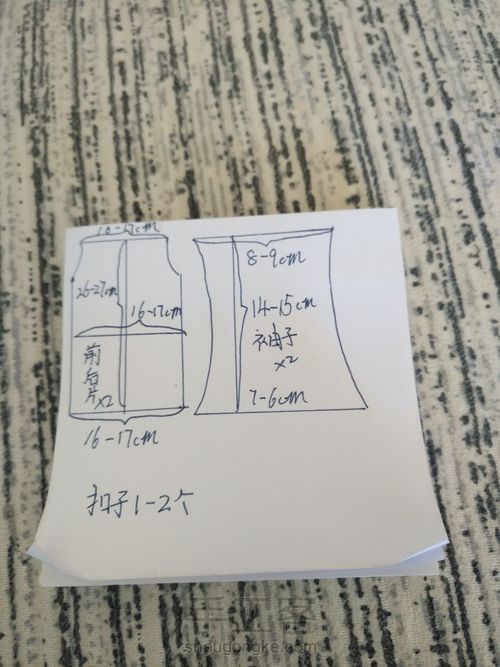 26-27cm
16-17cm
前
后
片x2
16-17cm
8-9cm
14-15cm
袖子
x2
7-6cm
扣子1-2个
手工客
shougongke.com